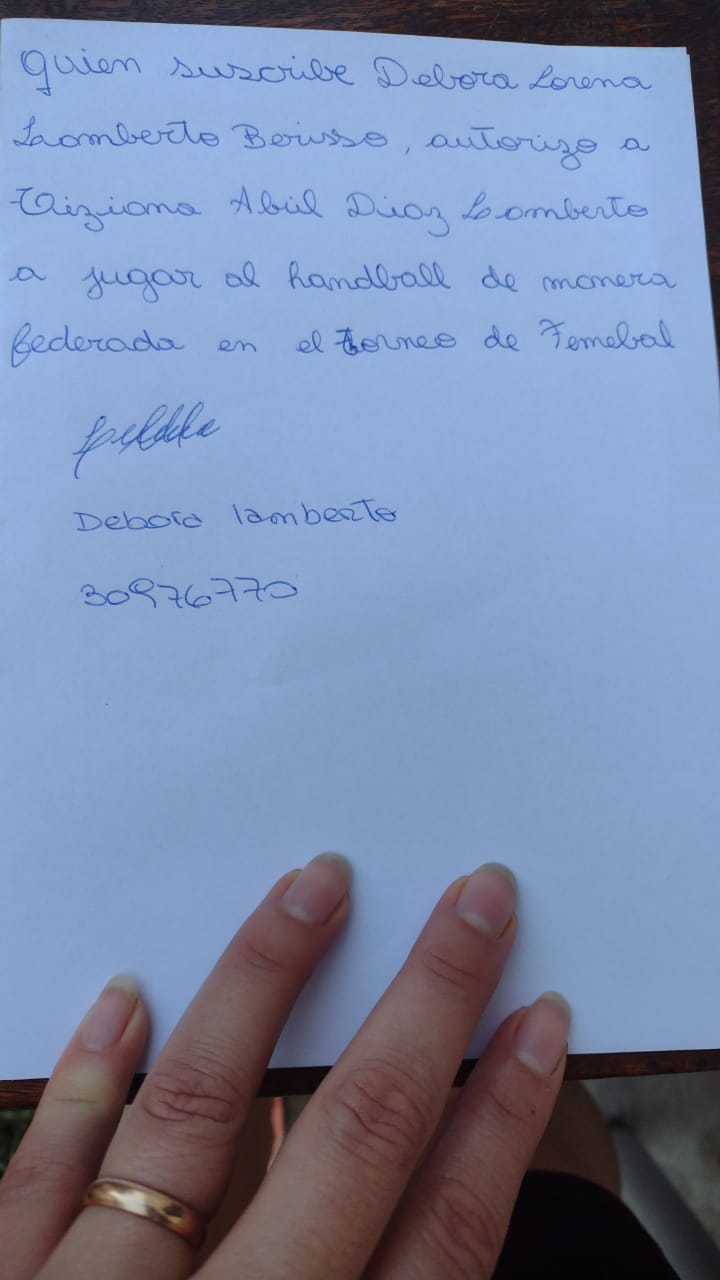 Quien suscribe Debora Lorena
Lamberto Berisso, autorizo a
Tiziana Abril Diaz Lamberto
a jugar al handball de manera
federada en el torneo de Femebal
Debora lamberto
30976770